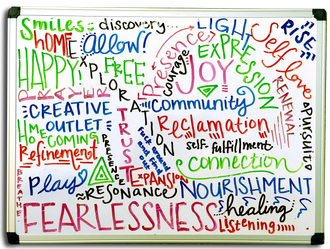 Smiles
discovery
LIGHT
"RISE"
HOME
Allow!
presence
courage
EXPRESSION
Self love
HAPPY!
EXPLORATION
FREE
JOY
PRAYER
RENEWAL
a pursuit
CREATIVE
OUTLET
community
HOMECOMING
TRUST
Reclamation
Refinement
self-fulfillment
connection
EXPANSION
Play
RESONANCE
NOURISHMENT
BREATHE
healing
FEARLESSNESS
Listening